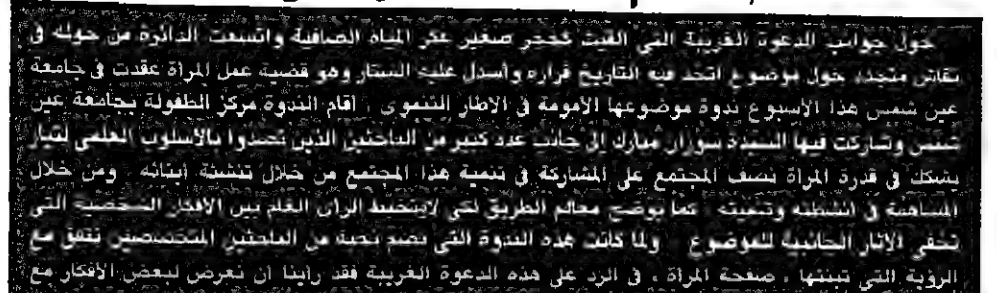 حول جوانب الدعوة الغريبة التي القيت كحجر صغير عكر المياه الصافية واتسعت الدائرة من حوله في
نقاش متجدد حول موضوع اتخذ فيه التاريخ قراره وأسدل عليه الستار وهو قضية عمل المرأة عقدت في جامعة
عين شمس هذا الأسبوع ندوة موضوعها الأمومة في الاطار التنموى ، أقام الندوة مركز الطفولة بجامعة عين
شمس وشاركت فيها السيدة سوزان مبارك إلى جانب عدد كبير من الباحثين الذين تصدوا بالأسلوب العلمى لتيار
يشكك في قدرة المرأة نصف المجتمع على المشاركة في تنمية هذا المجتمع من خلال تنشئة أبنائه ومن خلال
المساهمة في أنشطته وتنميته كما يوضح معالم الطريق لكى لايتخبط الرأى العام بين الأفكار الشخصية التى
تخفى الآثار الجانبية للموضوع ولما كانت هذه الندوة التى تضم نخبة من الباحثين المتخصصين تتفق مع
الرؤية التى تبنتها ، صفحة المرأة ، في الرد على هذه الدعوة الغريبة فقد رأينا أن نعرض لبعض الأفكار مع